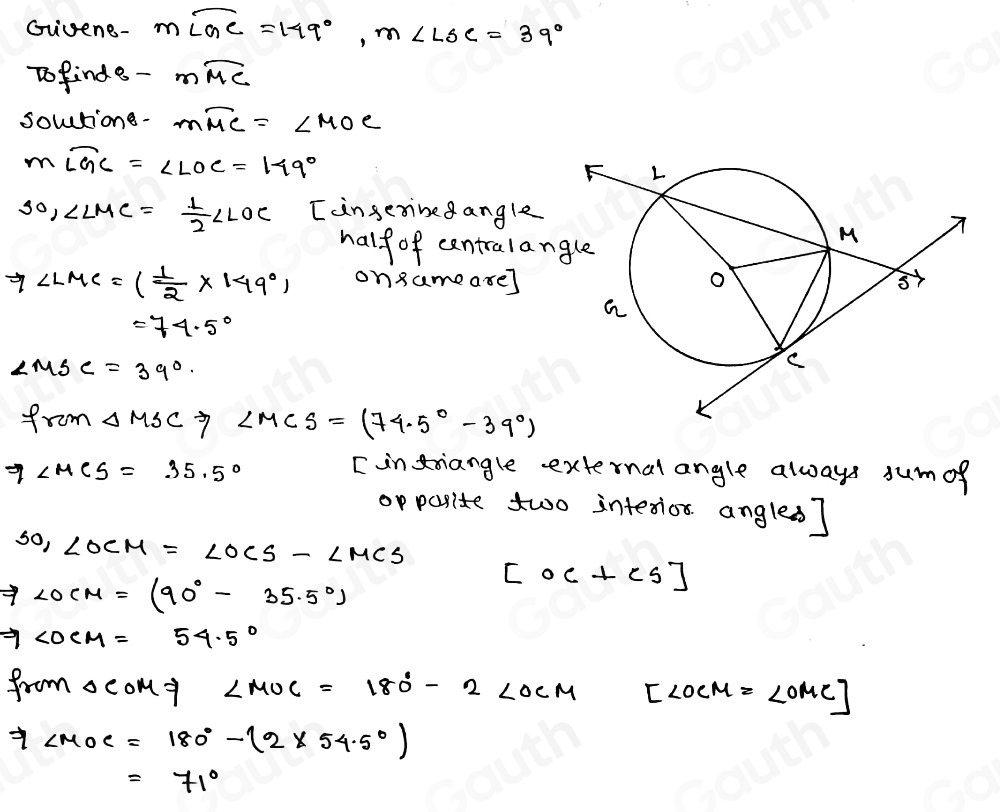 Givens- m⌢LGC = 149° , m∠LSC = 39°
To finds- m⌢MC
Solutions- m⌢MC = ∠MOC
m⌢LGC = ∠LOC = 149°
So, ∠LMC = 1/2 ∠LOC [inscribed angle
half of central angle
on same arc]
⇒ ∠LMC = (1/2 × 149°)
= 74.5°
∠MSC = 39°.
from △MSC ⇒ ∠MCS = (74.5° - 39°)
⇒ ∠MCS = 35.5° [in triangle external angle always sum of
opposite two interior angles]
so, ∠OCM = ∠OCS - ∠MCS
[OC ⊥ CS]
⇒ ∠OCM = (90° - 35.5°)
⇒ ∠OCM = 54.5°
from △COM ⇒ ∠MOC = 180° - 2 ∠OCM [∠OCM = ∠OMC]
⇒ ∠MOC = 180° - (2 × 54.5°)
= 71°
L
M
S
O
G
C
Gauth